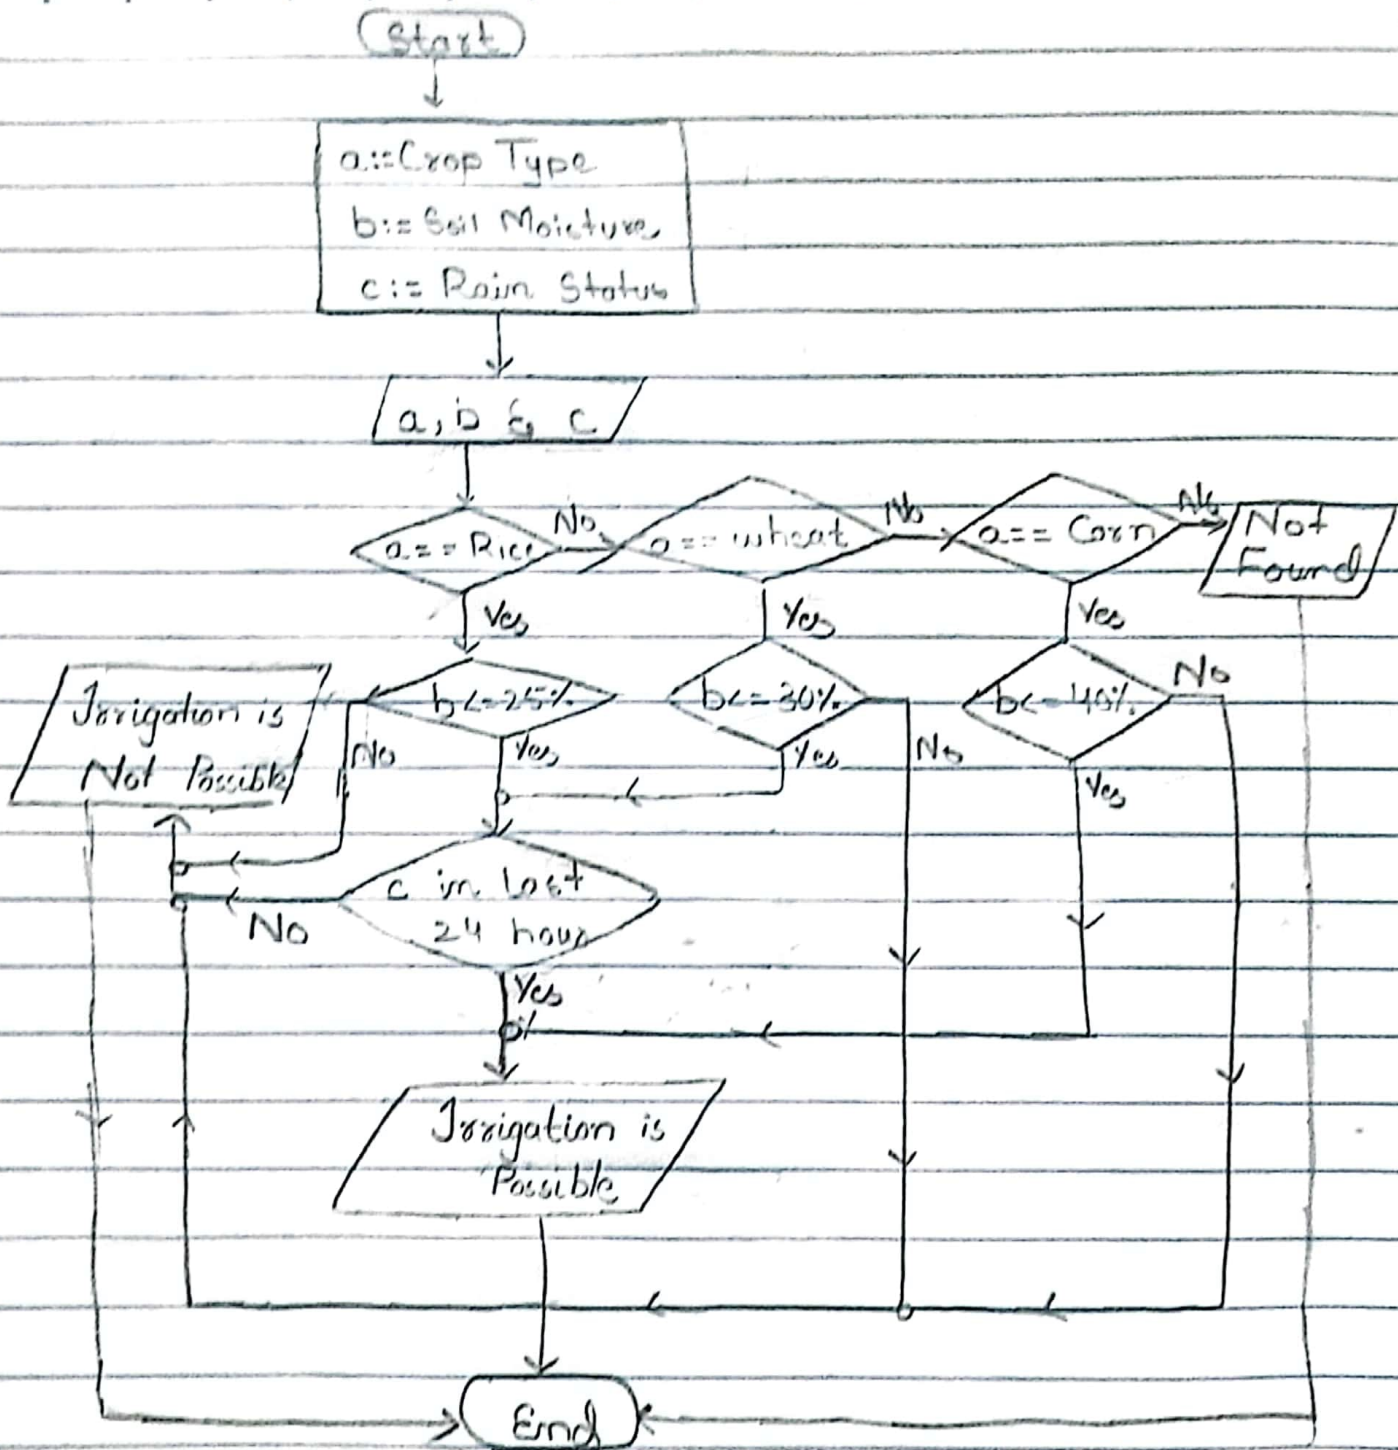 Start
a:=Crop Type
b:= Soil Moisture
c:= Rain Status
a, b & c
a==Rice
No
a==wheat
No
a==Corn
No
Not
Found
Yes
Yes
Yes
Irrigation is
Not Possible
b<=25%
b<=30%
b<=40%
No
No
Yes
Yes
No
Yes
c in last
24 hour
No
Yes
Irrigation is
Possible
End